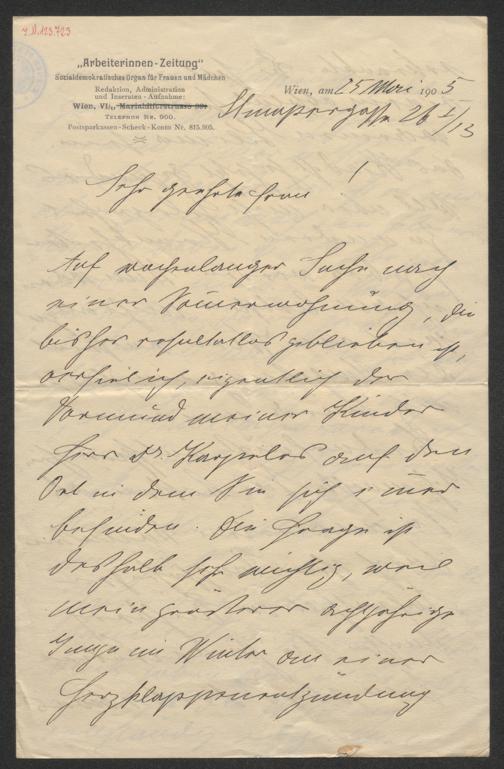 J.N. 123.723
„Arbeiterinnen-Zeitung“
Sozialdemokratisches Organ für Frauen und Mädchen
Redaktion, Administration
und Inseraten-Aufnahme:
Wien, VI/1, Mariahilferstrasse
Telephon Nr. 900.
Postsparkassen-Scheck-Konto Nr. 815.905.
Wien, am 25 Mai 1905
26 I/13
Sehr geehrte Frau!
Auf wochenlanger Suche nach
einer Somerwohnung, die
bisher resultatlos geblieben ist,
ich, eigentlich der
Vormund meiner Kinder
Herr Dr. Karpeles auf den
Ort in dem Sie sich imer
befinden. Die Frage ist
deshalb sehr wichtig, weil
mein achtjähriger
Junge im Winter an einer
Herzklappenentzündung